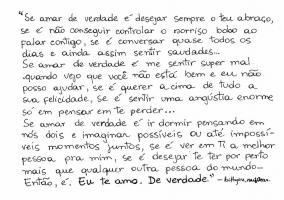 "Se amar de verdade é desejar sempre o teu abraço,
se é não conseguir controlar o sorriso bobo ao
falar contigo, se é conversar quase todos os
dias e ainda assim sentir saudades...
Se amar de verdade é me sentir super mal
quando vejo que você não está bem e eu não
posso ajudar, se é querer acima de tudo a
sua felicidade, se é sentir uma angústia enorme
só em pensar em te perder...
Se amar de verdade é ir dormir pensando em
nós dois e imaginar possíveis ou até impossí-
veis momentos juntos, se é ver em ti a melhor
pessoa pra mim, se é desejar te ter por perto
mais que qualquer outra pessoa do mundo...
Então, é. Eu te amo. De verdade." -